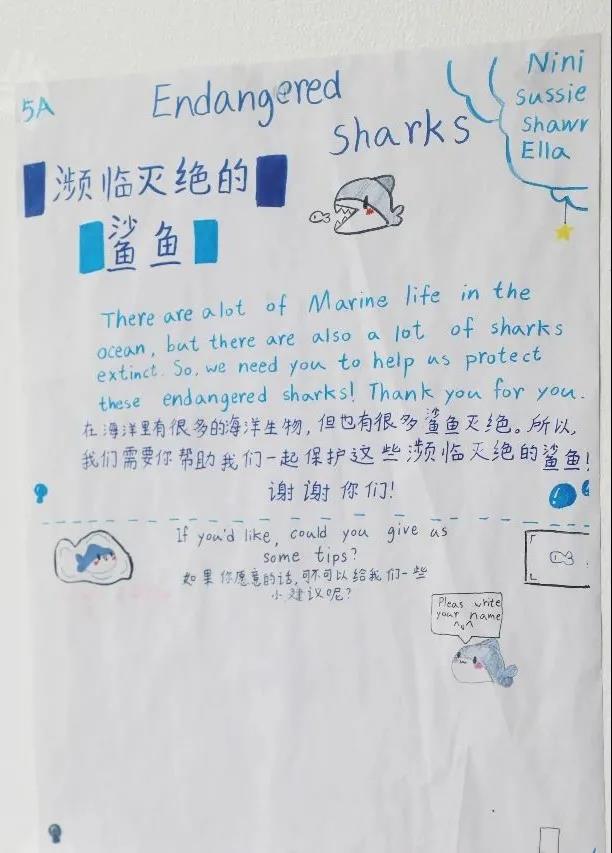 5A
Endangered
Sharks
Nini
sussie
shawr
Ella
濒临灭绝的
鲨鱼
There are alot of Marine life in the
ocean, but there are also a lot of sharks
extinct. So, we need you to help us protect
these endangered sharks! Thank you for you.
在海洋里有很多的海洋生物，但也有很多鲨鱼灭绝。所以，
我们需要你帮助我们一起保护这些濒临灭绝的鲨鱼！
谢谢你们！
If you'd like, could you give us
some tips?
如果你愿意的话，可不可以给我们一些
小建议呢？
Pleas write
your name
^o^